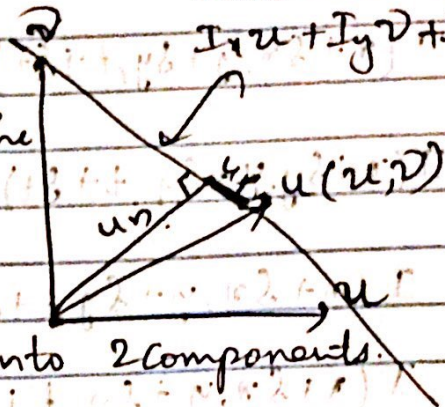 v
Ixu + Iyv +
u(u,v)
un
u
nto 2 components.